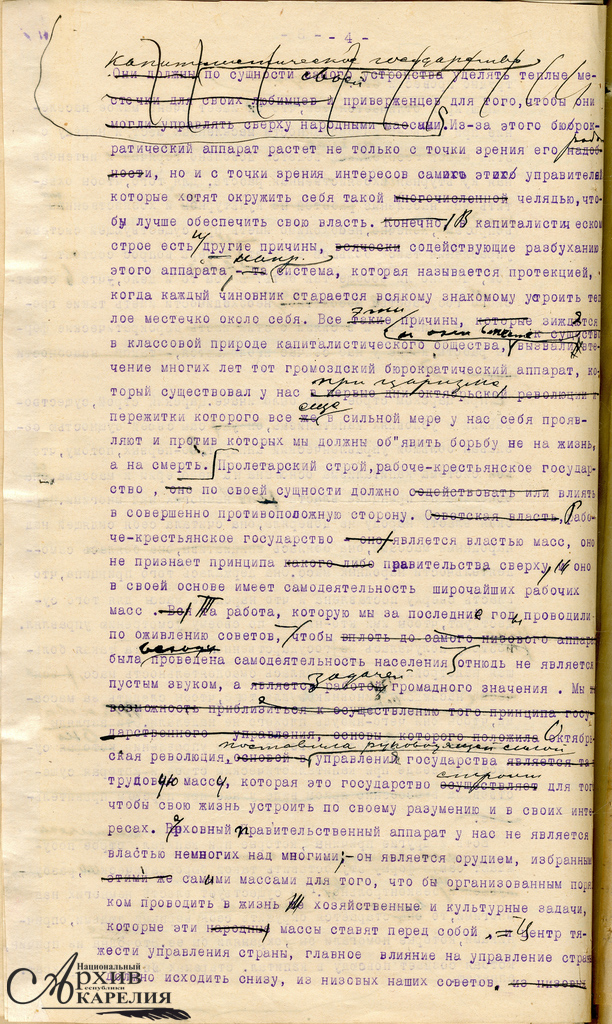 - 4 -
Капиталистическое государство
Они должны по сущности самого своей устройства уделять теплые ме-
стечки для своих любимцев и приверженцев для того, чтобы они
могли управлять сверху народными массами. Из-за этого бюрок-
ратический аппарат растет не только с точки зрения его надоб-
ности, но и с точки зрения интересов самих этих управителей
которые хотят окружить себя такой многочисленной челядью, что-
бы лучше обеспечить свою власть. Конечно, В капиталистическом
строе есть и другие причины, всячески содействующие разбуханию
этого аппарата, - та напр. система, которая называется протекцией,
когда каждый чиновник старается всякому знакомому устроить теп
лое местечко около себя. Все такие эти причины, которые зиждятся
в классовой природе капиталистического общества, вызвали в те-
чение многих лет тот громоздкий бюрократический аппарат, ко-
торый существовал у нас в первые дни октябрьской революции при царизме, и
пережитки которого все же еще в сильной мере у нас себя прояв-
ляют и против которых мы должны об"явить борьбу не на жизнь,
а на смерть. Пролетарский строй, рабоче-крестьянское государ-
ство, оно по своей сущности должно содействовать или влиять
в совершенно противоположную сторону. Советская власть, Рабо-
че-крестьянское государство - оно является властью масс, оно
не признает принципа какого либо правительства сверху, оно
в своей основе имеет самодеятельность широчайших рабочих
масс. Вся Та работа, которую мы за последние годы проводили
по оживлению советов, чтобы вплоть до самого низового аппара
была проведена самодеятельность населения, отнюдь не является
пустым звуком, а является работой задачей громадного значения. Мы
возможность приблизиться к осуществлению того принципа госу-
дарственного управления, основы которого положила Октябрь-
ская революция, основой в поставила руководящей силой управления государства является та
трудовую массу, которая это государство осуществляет строит для того
чтобы свою жизнь устроить по своему разумению и в своих инте-
ресах. Верховный правительственный аппарат у нас не является
властью немногих над многими; - он является орудием, избранным
этими же самими массами для того, что бы организованным поряд
ком проводить в жизнь те хозяйственные и культурные задачи,
которые эти народные массы ставят перед собой, - и Центр тя-
жести управления страны, главное влияние на управление страны
должно исходить снизу, из низовых наших советов, из низовых
Национальный
Архив
Республики
КАРЕЛИЯ